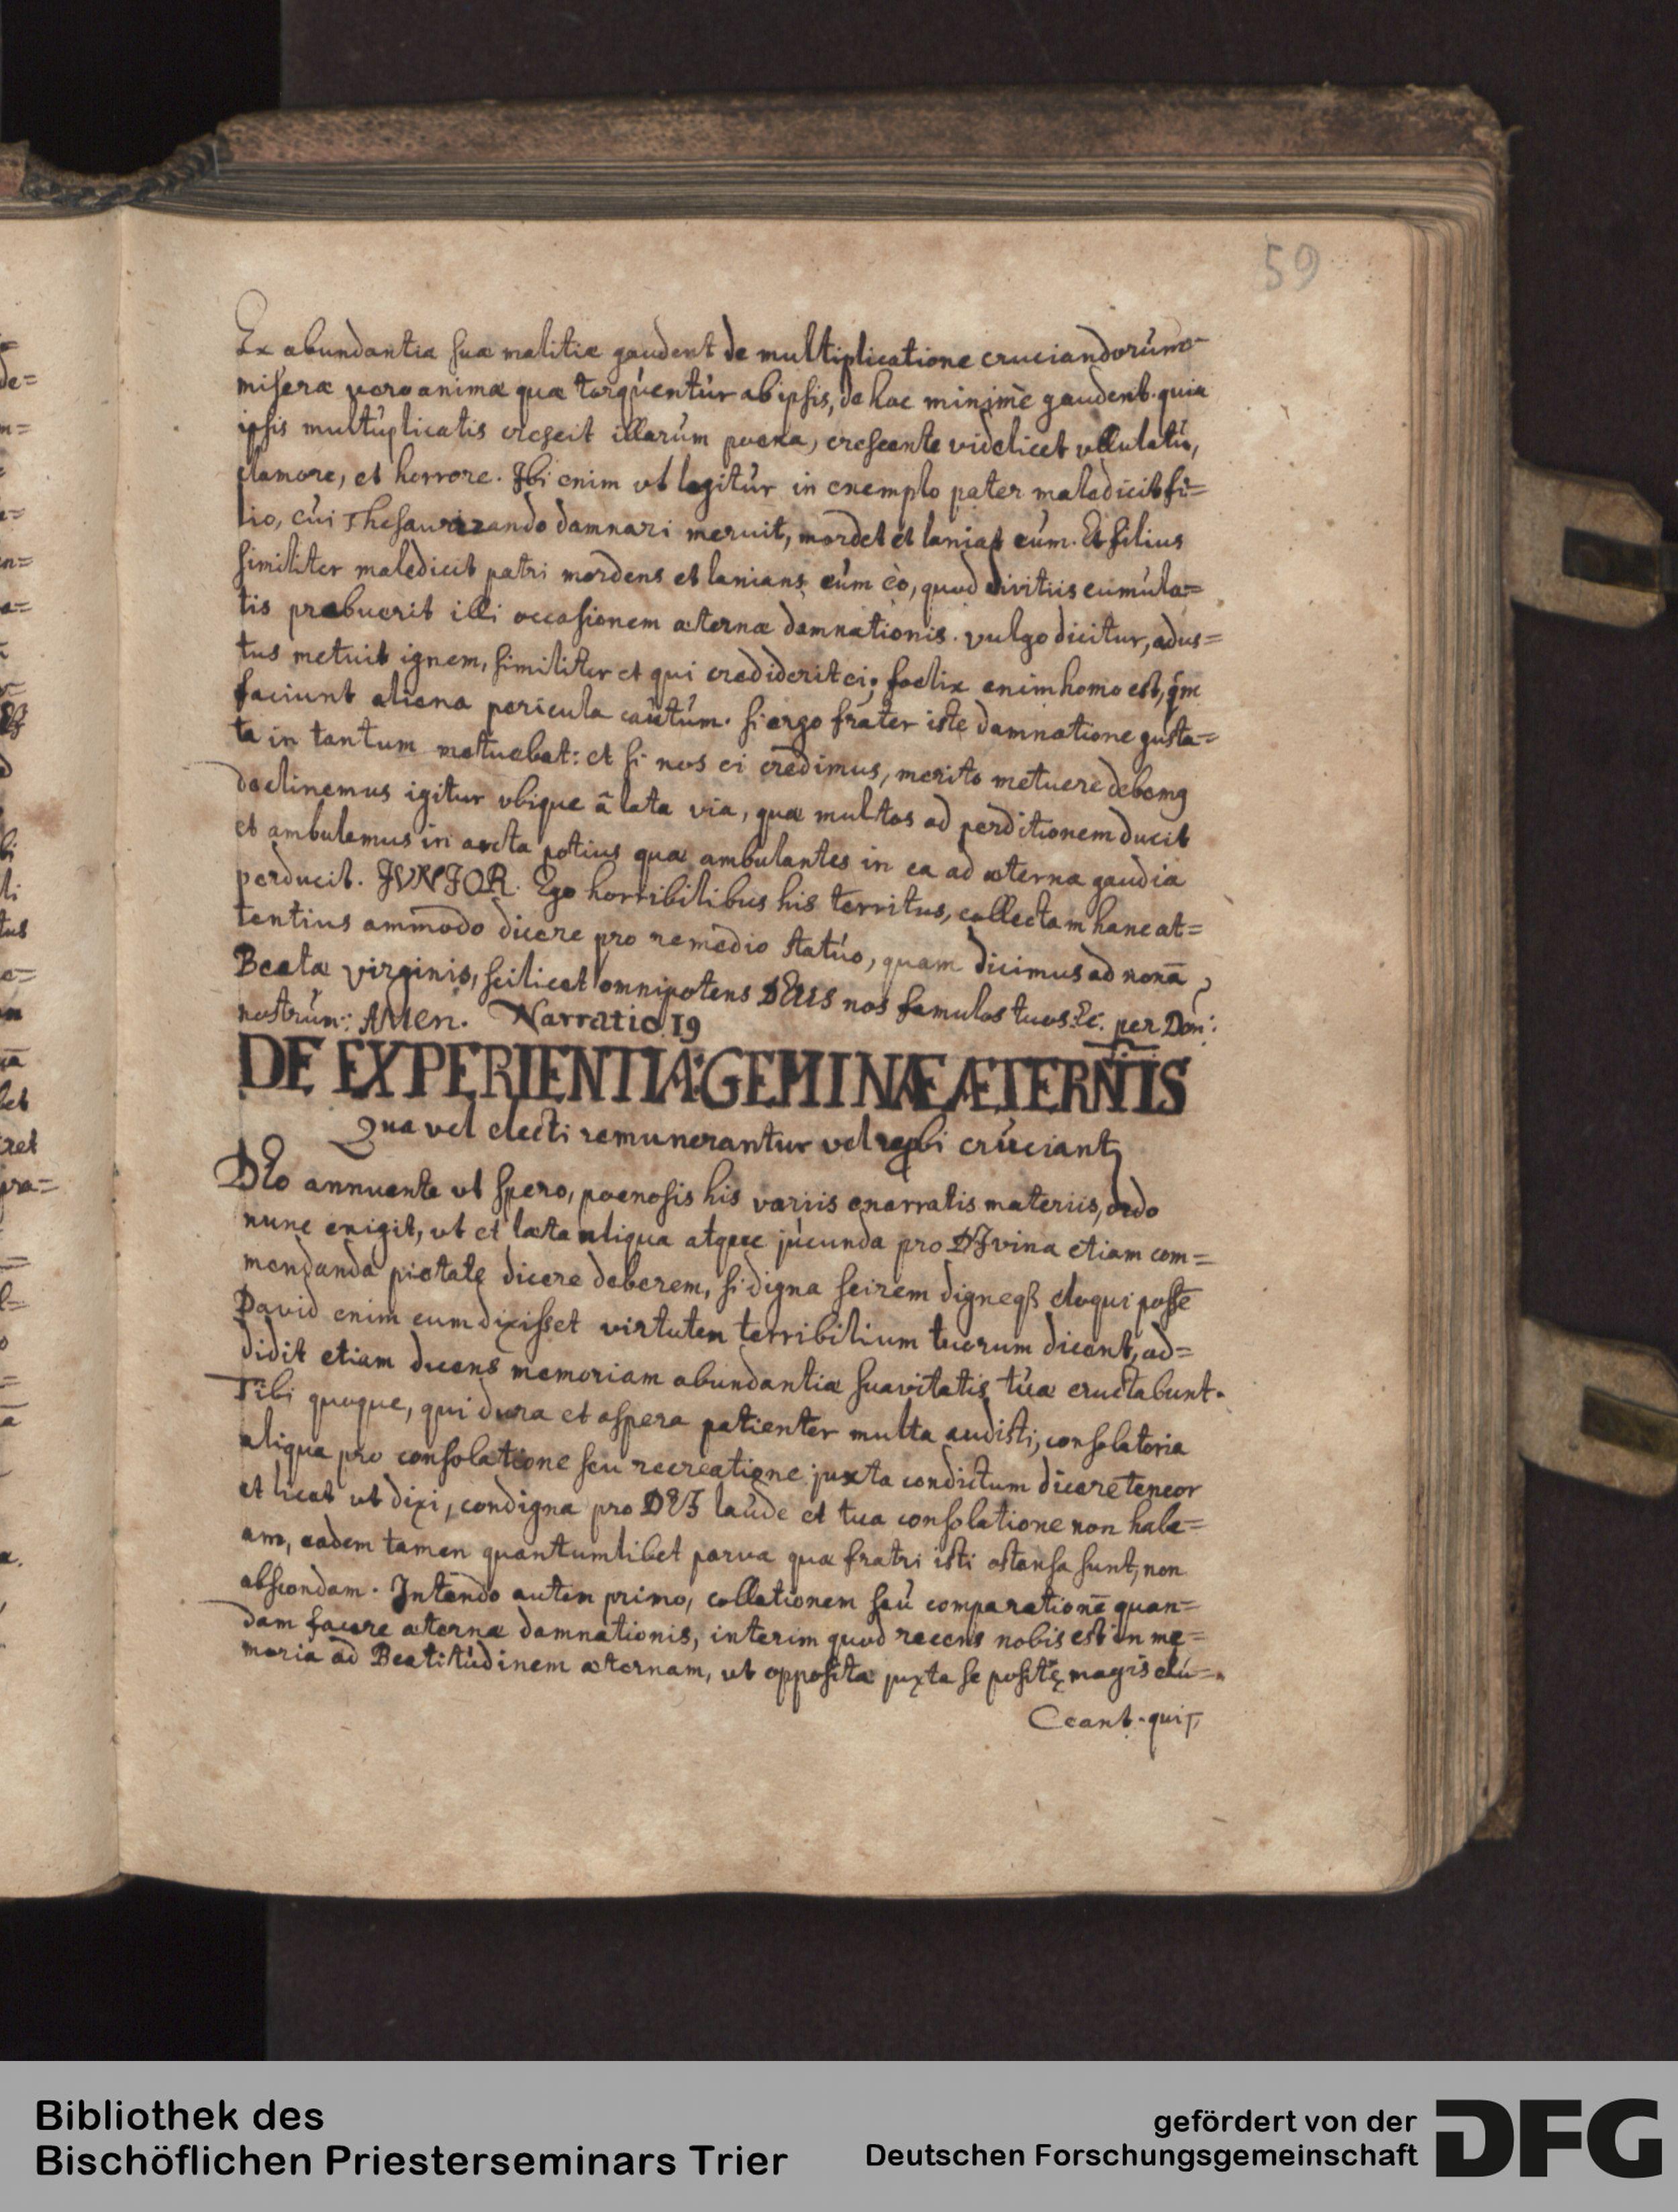 59
Ex abundantia suæ malitiæ gaudent de multiplicatione cruciandorúm
miseræ vero animæ quæ torquentúr ab ipsis, de hac minimè gaudent. quia
ipsis multúplicatis crescit illarúm poena, crescente videlicet ullulatú,
clamore, et horrore. Ibi enim ut legitúr in exemplo pater maledicit fi=
lio, cúi Thesaurizando damnari meruit, mordet et laniat eúm. Et filius
similiter maledicit patri mordens et lanians eúm èò, quod divitiis cumúla=
tis præbuerit illi occasionem æternæ damnationis. vulgo dicitur, adus=
tus metuit ignem, similiter et qui crediderit ei; foelix enim homo est, qm
faciunt aliena pericula caútúm. si ergo frater iste damnatione gusta=
ta in tantum metuebat: et si nos ei credimus, merito metuere debemg
declinemus igitur ubique ā lata via, quæ multos ad perditionem ducit
et ambulemus in arcta potius quæ ambulantes in ea ad æterna gaudia
perducit. JVNJOR. Ego horribilibus his territus, collectam hanc at=
tentius ammodo dicere pro remedio statúo, quam dicimus ad nonā
Beatæ virginis, scilicet omnipotens DEUS nos famulos tuos. &c. per Dom:
nostrúm: AMen. Narratio 19
DE EXPERIENTIA GEMINÆ ÆTERNTIS
Qua vel electi remunerantur vel repbi crúciant
DEo annuente ut spero, poenosis his variis enarratis materiis, ordo
nunc exigit, ut et læta aliqua atque júcunda pro DIvina etiam com=
mendanda pietate dicere deberem, si digna scirem digneqß eloqui posse
David enim cum dixisset virtutem terribilium tuorum dicent, ad=
didit etiam dicens memoriam abundantiæ suavitatis túæ eructabunt.
Tibi quoque, qui dura et aspera patienter multa audisti, consolatoria
aliqua pro consolatione seu recreatione juxta condictum dicere teneor
et licet ut dixi, condigna pro DEI laúde et tua consolatione non habe=
am, eadem tamen quantumlibet parva quæ fratri isti ostensa sunt, non
abscondam. Intendo autem primo, collationem seú comparationē quan=
dam facere æternæ damnationis, interim quod recens nobis est in me=
moria ad Beatitúdinem æternam, ut opposita juxta se positę magis elú=
Ceant. qui
Bibliothek des
Bischöflichen Priesterseminars Trier
gefördert von der
Deutschen Forschungsgemeinschaft
DFG